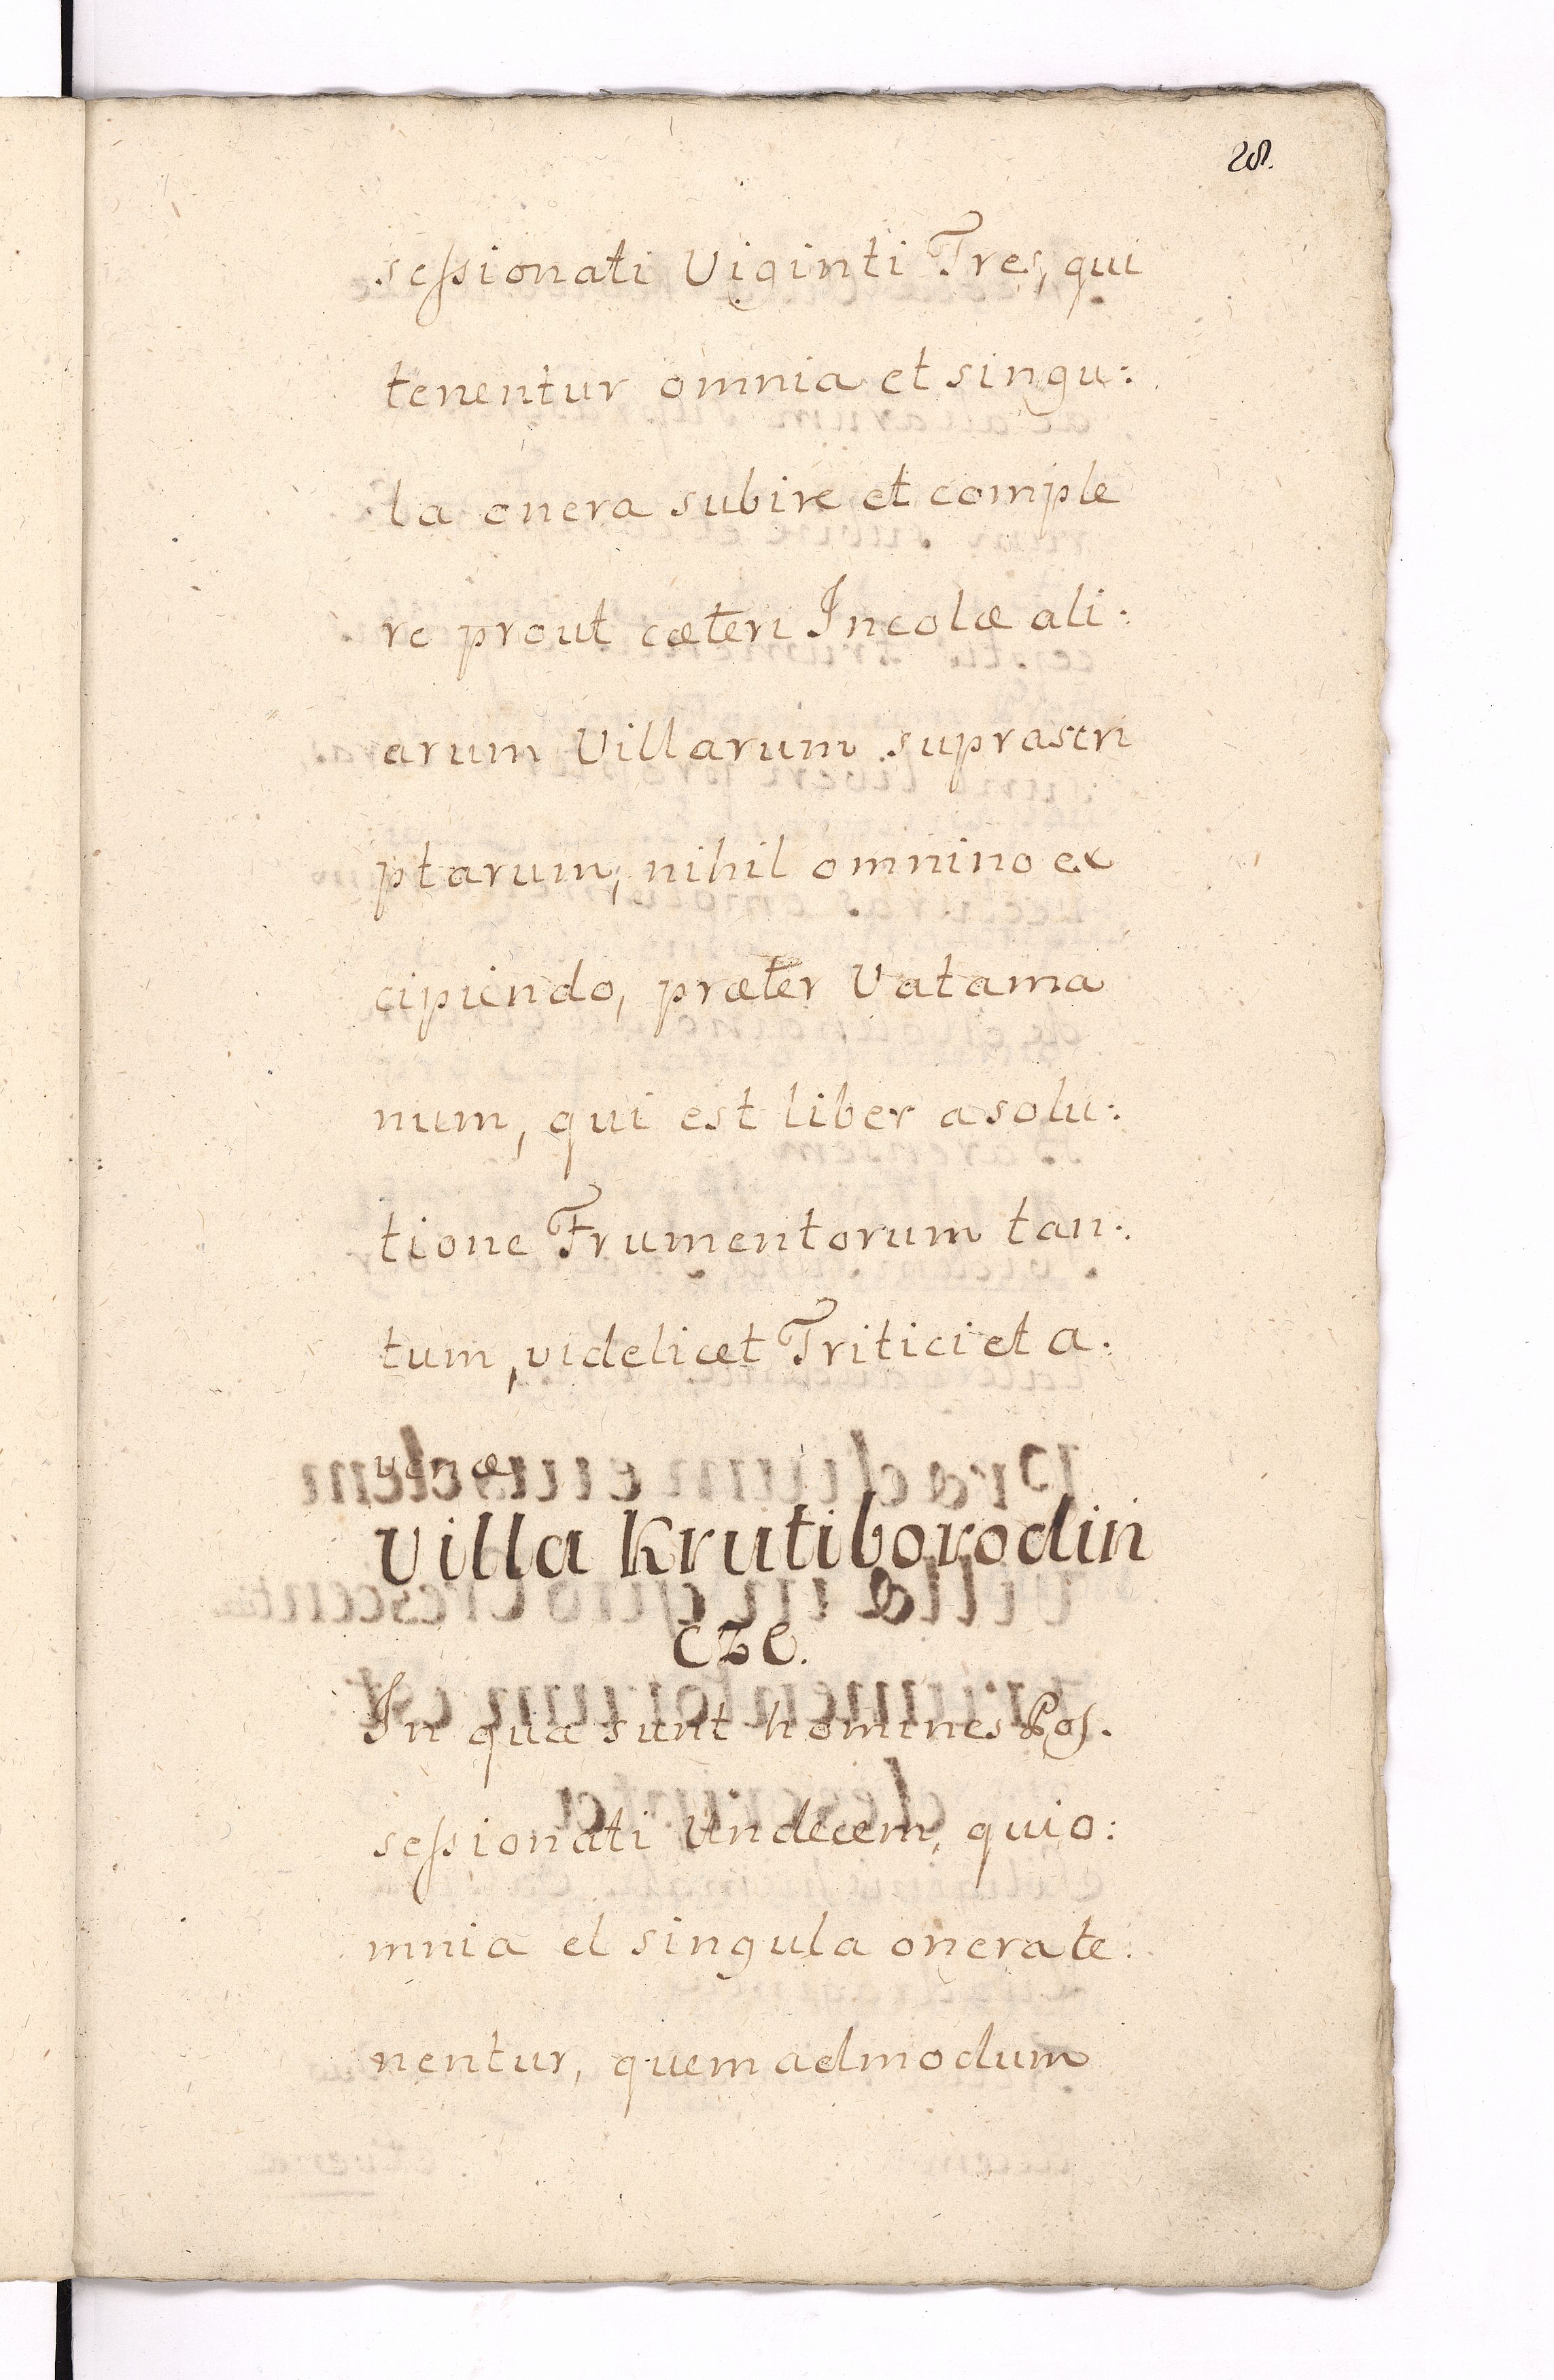 28.
seſsionati Viginti Tres, qui
tenentur omnia et singu:
la onera subire et comple
re prout cæteri Incolæ ali:
arum Villarum suprascri
ptarum, nihil omnino ex
cipiendo, præter Vatama
num, qui est liber a solu:
tione Frumentorum tan:
tum, videlicet Tritici et a:
uenæ
Villa Krutiborodin
cze.
In qua sunt homines Poſ.
seſsionati Undecem, qui o:
mnia et singula onera te:
nentur, quemadmodum